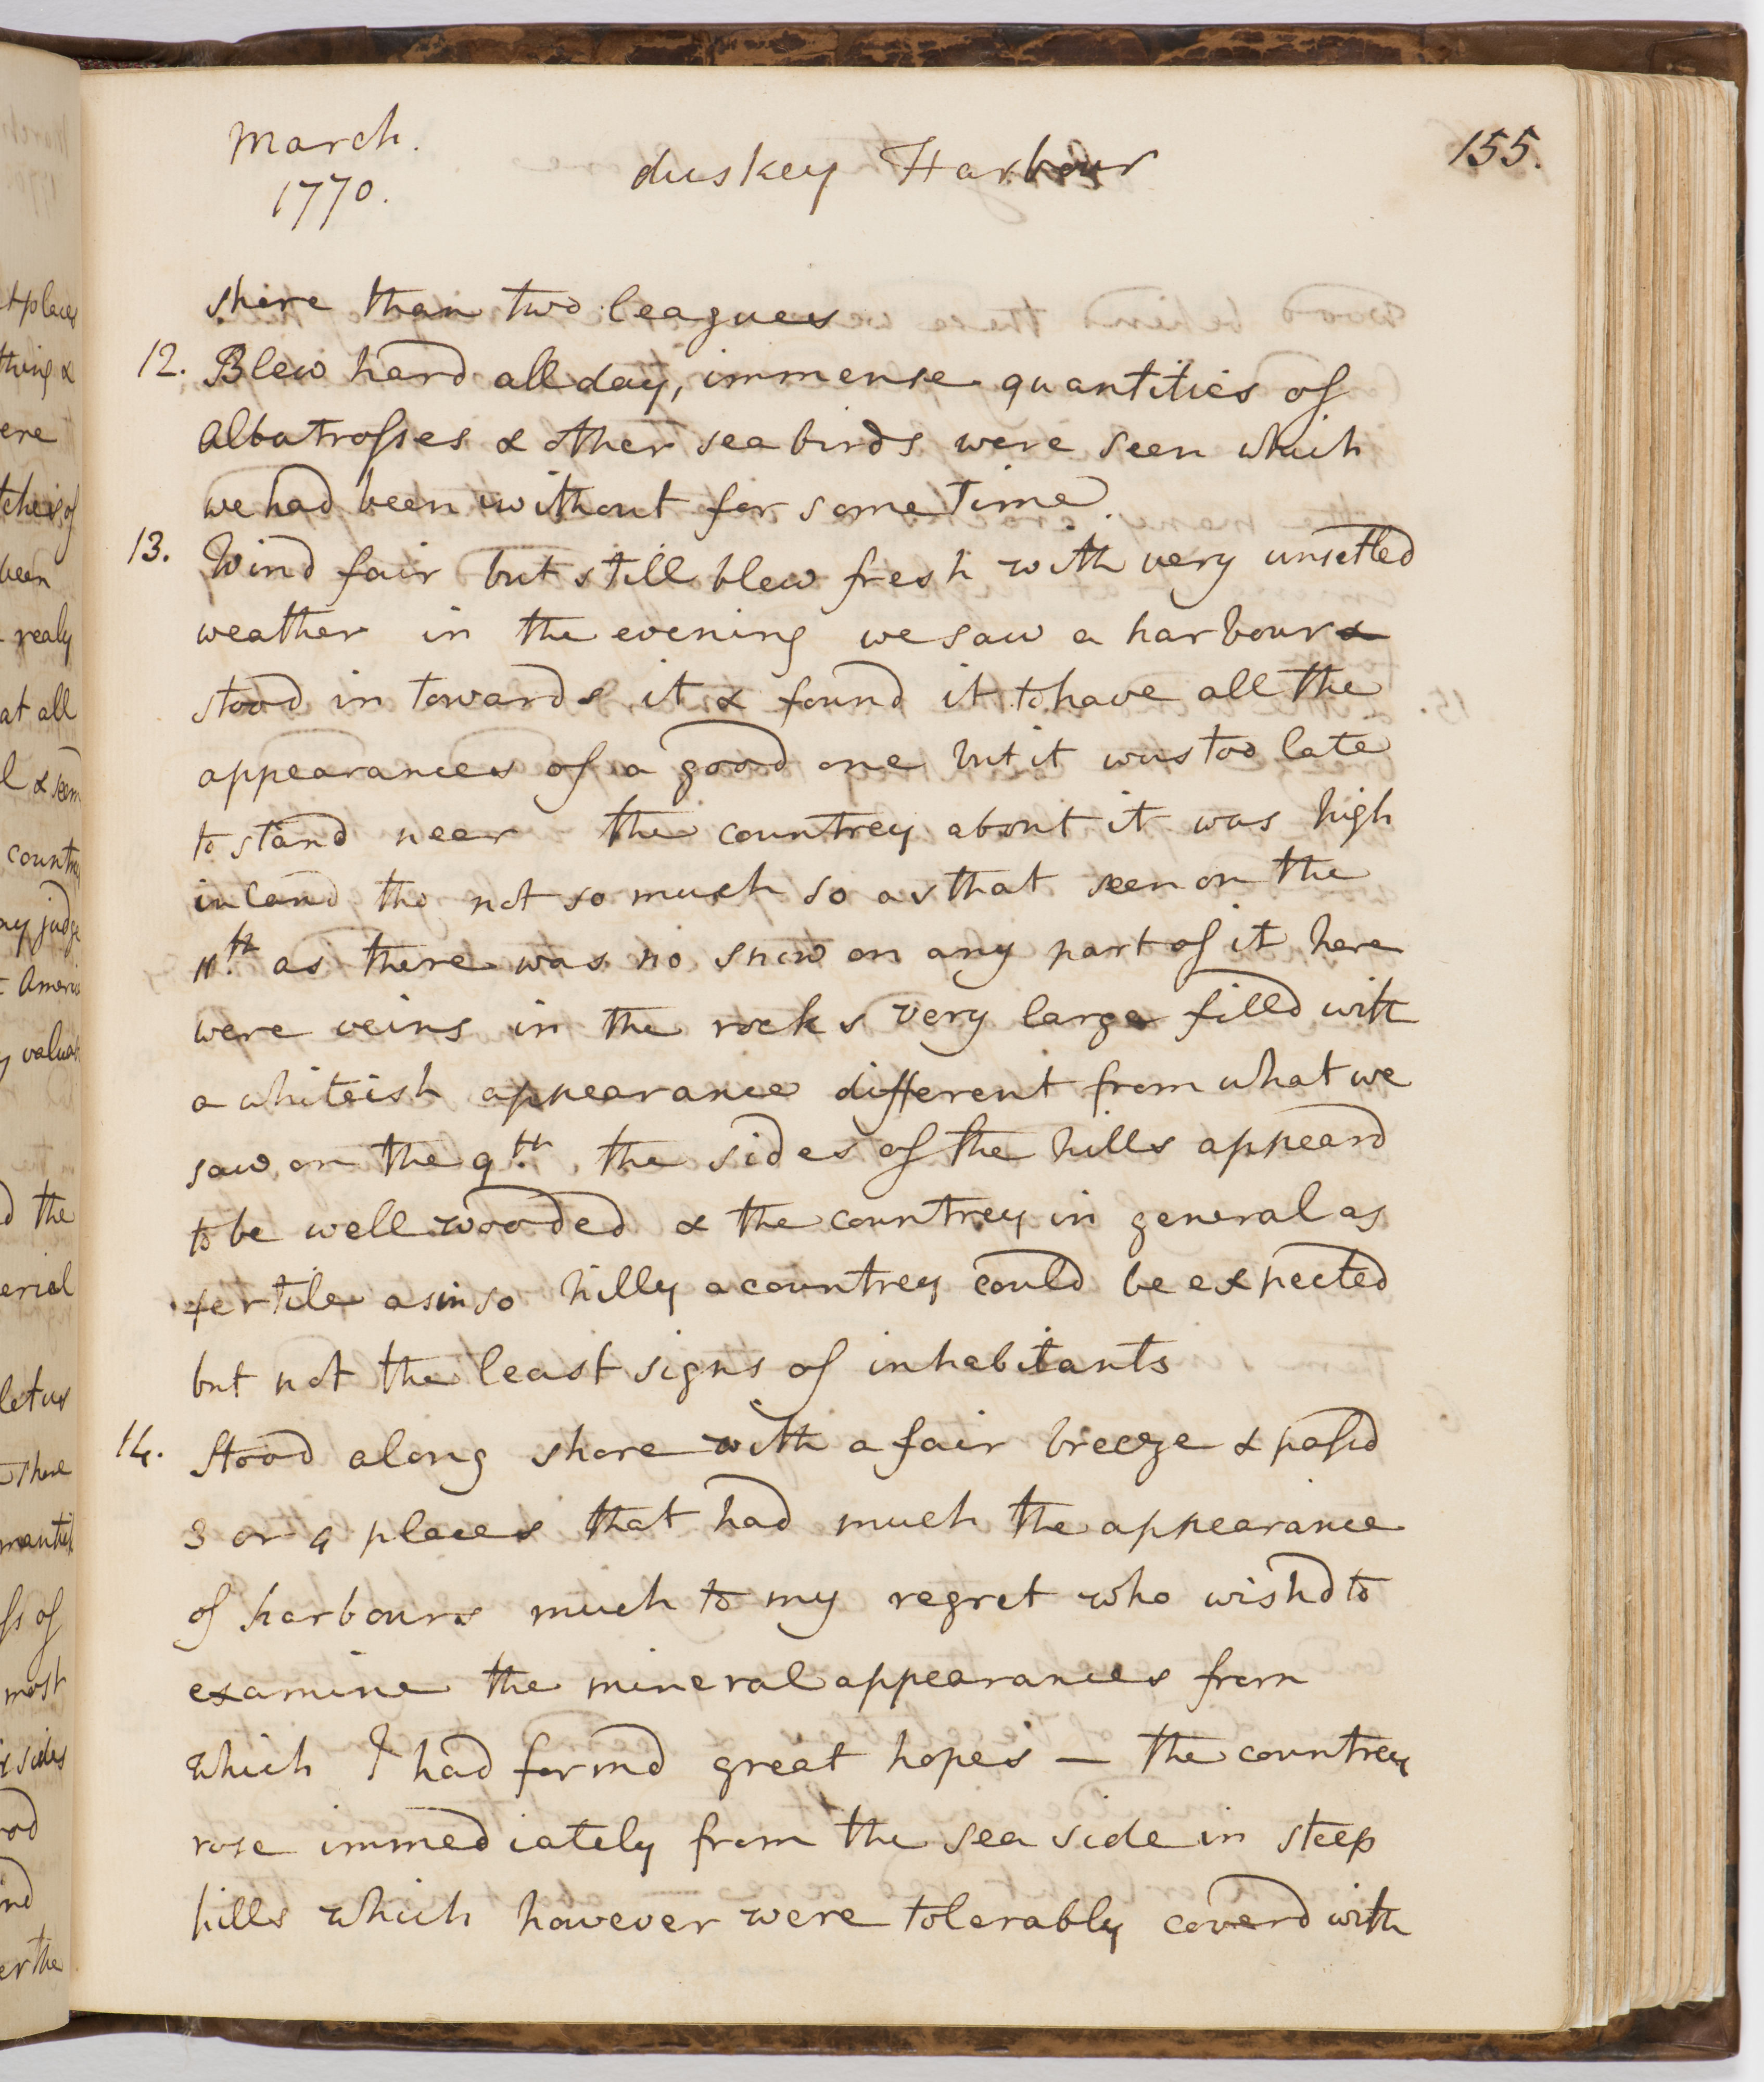 March.
1770.
duskey Harbour
155.
shore than two leagues
12. Blew hard all day, immense quantities of
Albatrosses & other sea birds were seen which
we had been without for some time.
13. Wind fair but still blew fresh with very unsetled
weather in the evening we saw a harbour &
stood in towards it & found it to have all the
appearances of a good one but it was too late
to stand near the countrey about it was high
inland tho not so much so as that seen on the
11th as there was no snow on any part of it here
were veins in the rocks very large filled with
a whiteish appearance different from what we
saw on the 9th. the sides of the hills appeard
to be well wooded & the countrey in general as
fertile as in so hilly a countrey could be expected
but not the least signs of inhabitants
14. Stood along shore with a fair breeze & passd
3 or 4 places that had much the appearance
of harbours much to my regret who wishd to
examine the mineral appearances from
which I had formd great hopes — the countrey
rose immediately from the sea side in steep
hills which however were tolerably coverd with